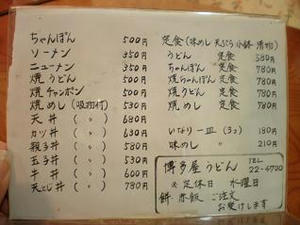 ちゃんぽん 500円
ソーメン 350円
ニューメン 350円
焼うどん 500円
焼チャンポン 500円
焼めし(吸物付) 530円
天丼 (〃) 680円
カツ丼 (〃) 630円
親子丼 (〃) 580円
玉子丼 (〃) 530円
牛丼 (〃) 600円
天とじ丼 (〃) 780円
定食(味めし 天ぷら 小鉢 漬物)
うどん 定食 580円
ちゃんぽん 定食 780円
焼ちゃんぽん 定食 780円
焼うどん 定食 780円
いなり一皿(3コ) 180円
味めし 210円
博多屋うどん TEL 22-4700
※定休日 水曜日
餅 赤飯 ご注文
お受けします